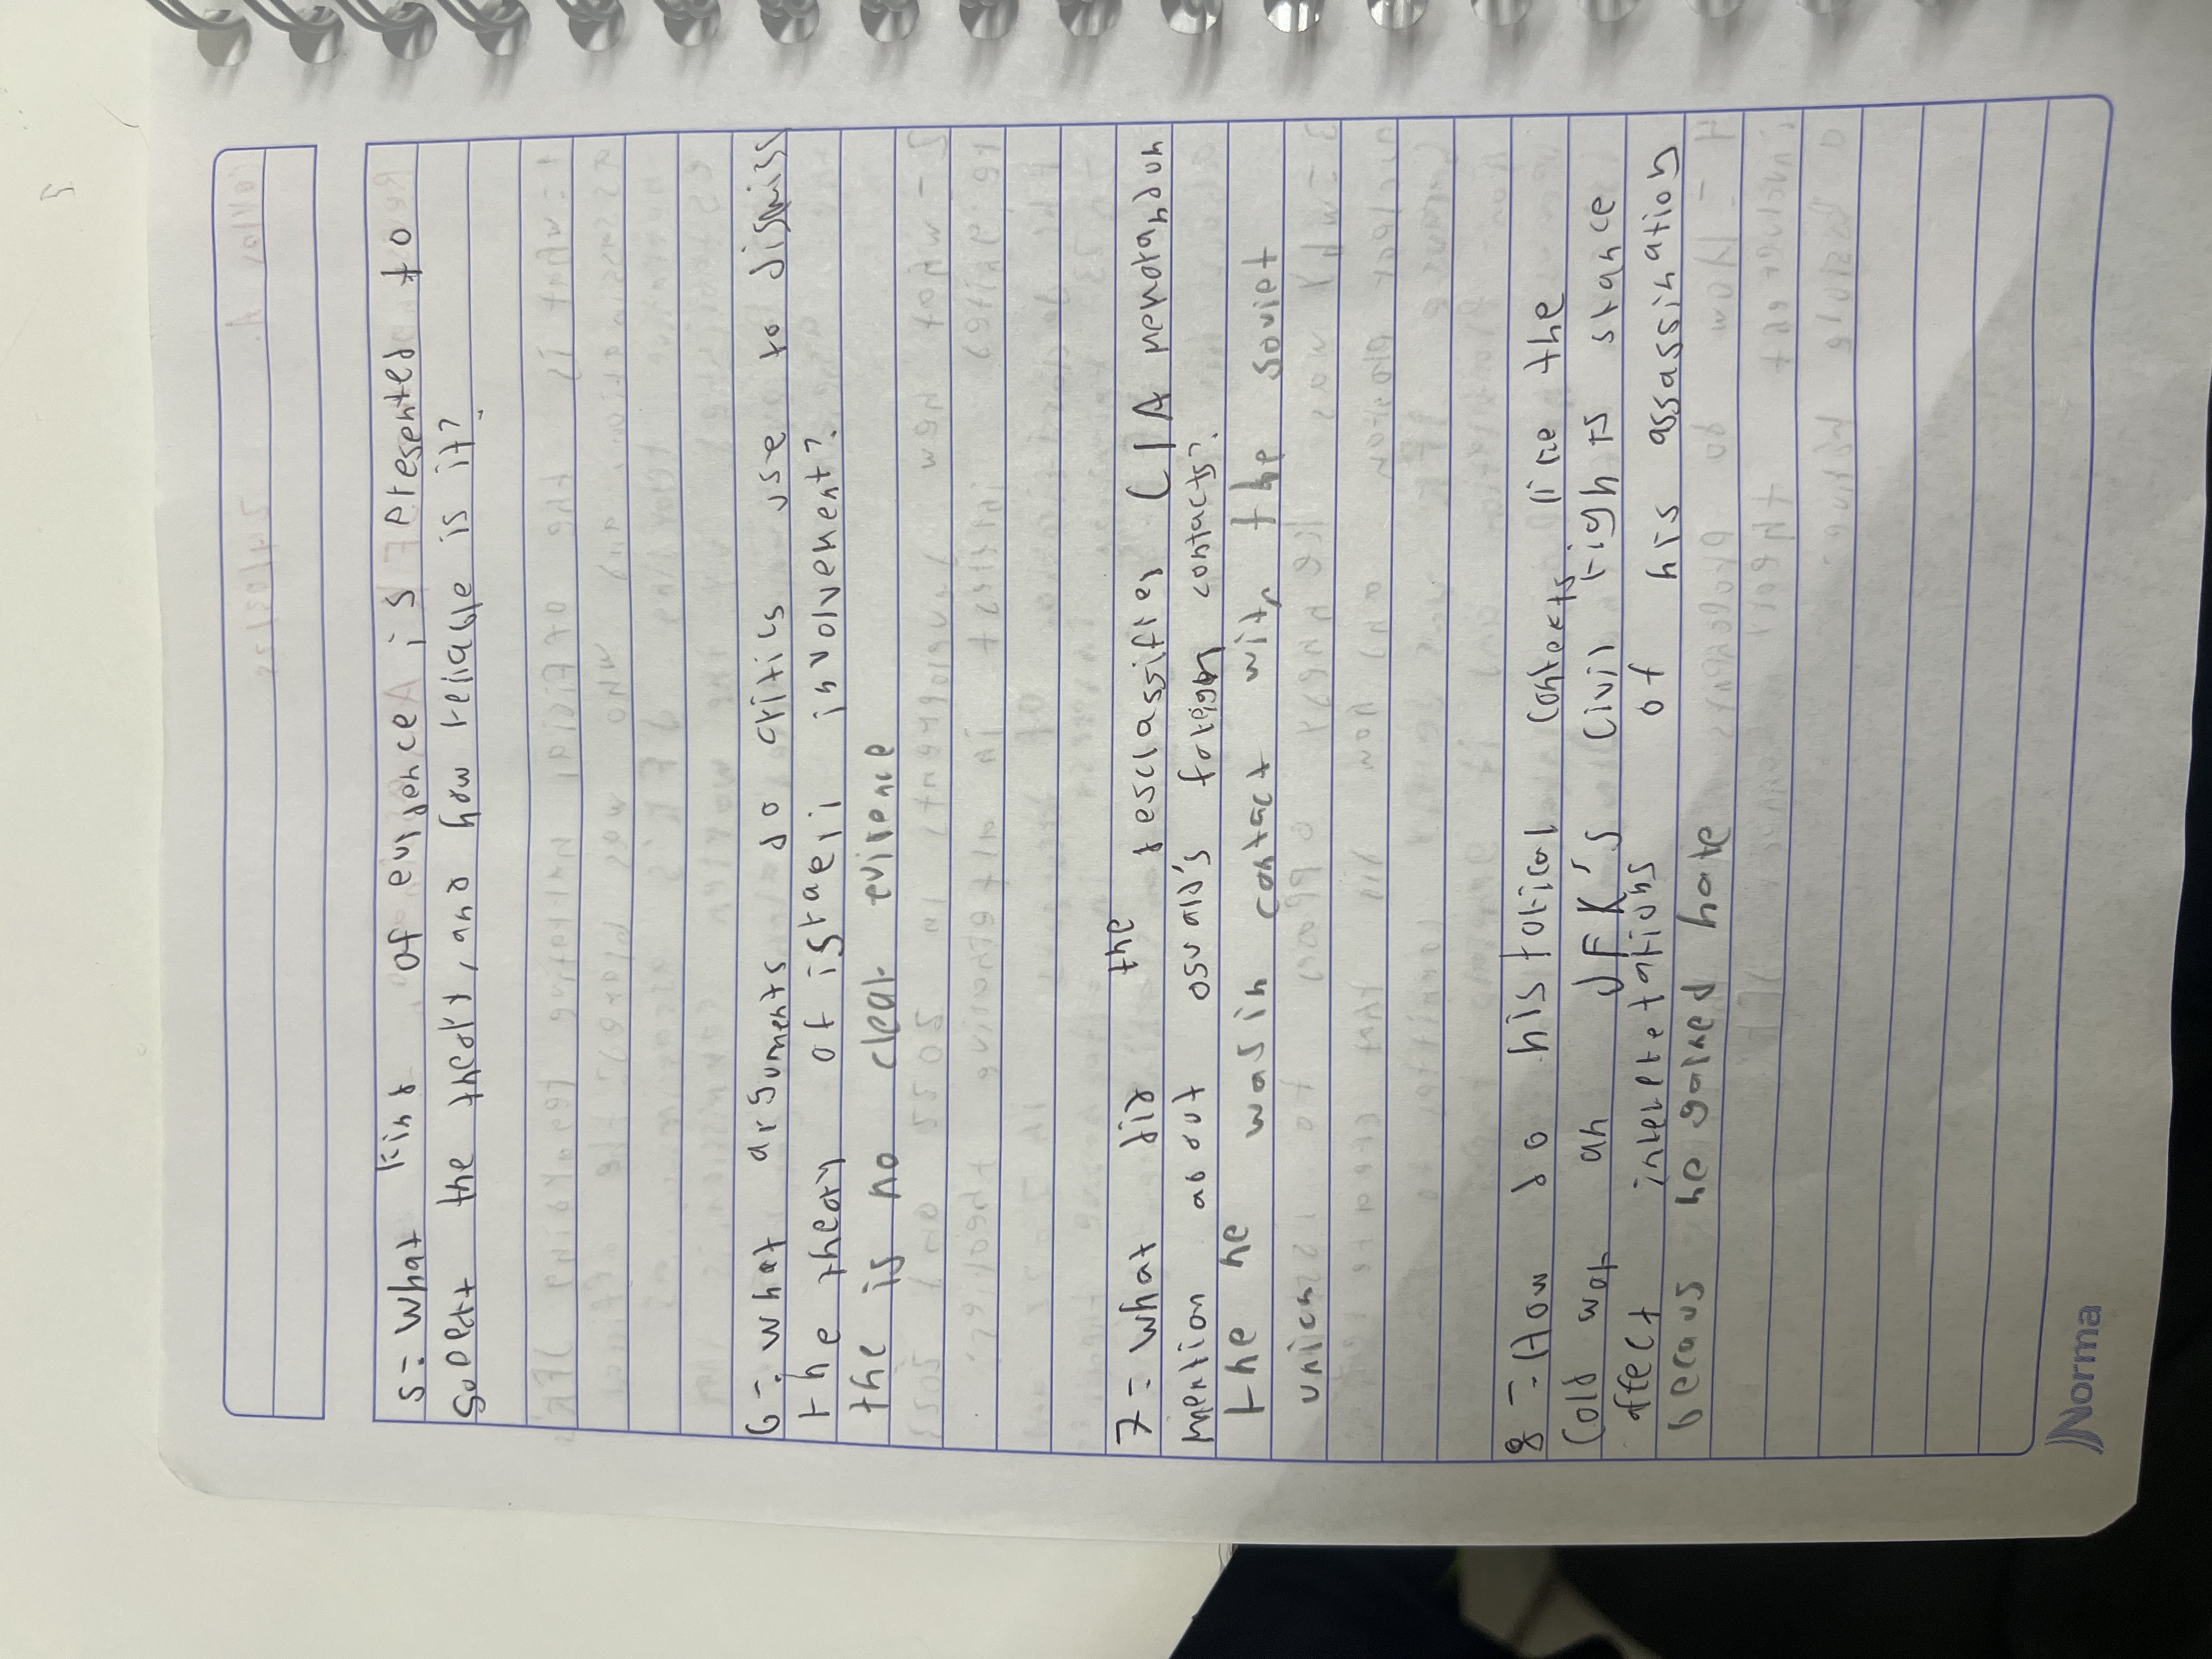 5-. what kind of evidence is presented to
Soport the theory, and how reliable is it?
6-. what arguments do critics use to dismiss
the theory of israeli involvement?
the is no clear evidence
7-. what did the desclassified CIA memorandun
mention about osuald's foreign contacts?
the he was in contact with the soviet
union
8-. How do historical contexts like the
cold war an JFK's civil rights stance
affect interpretations of his assassination
becaus he gained hate
Norma